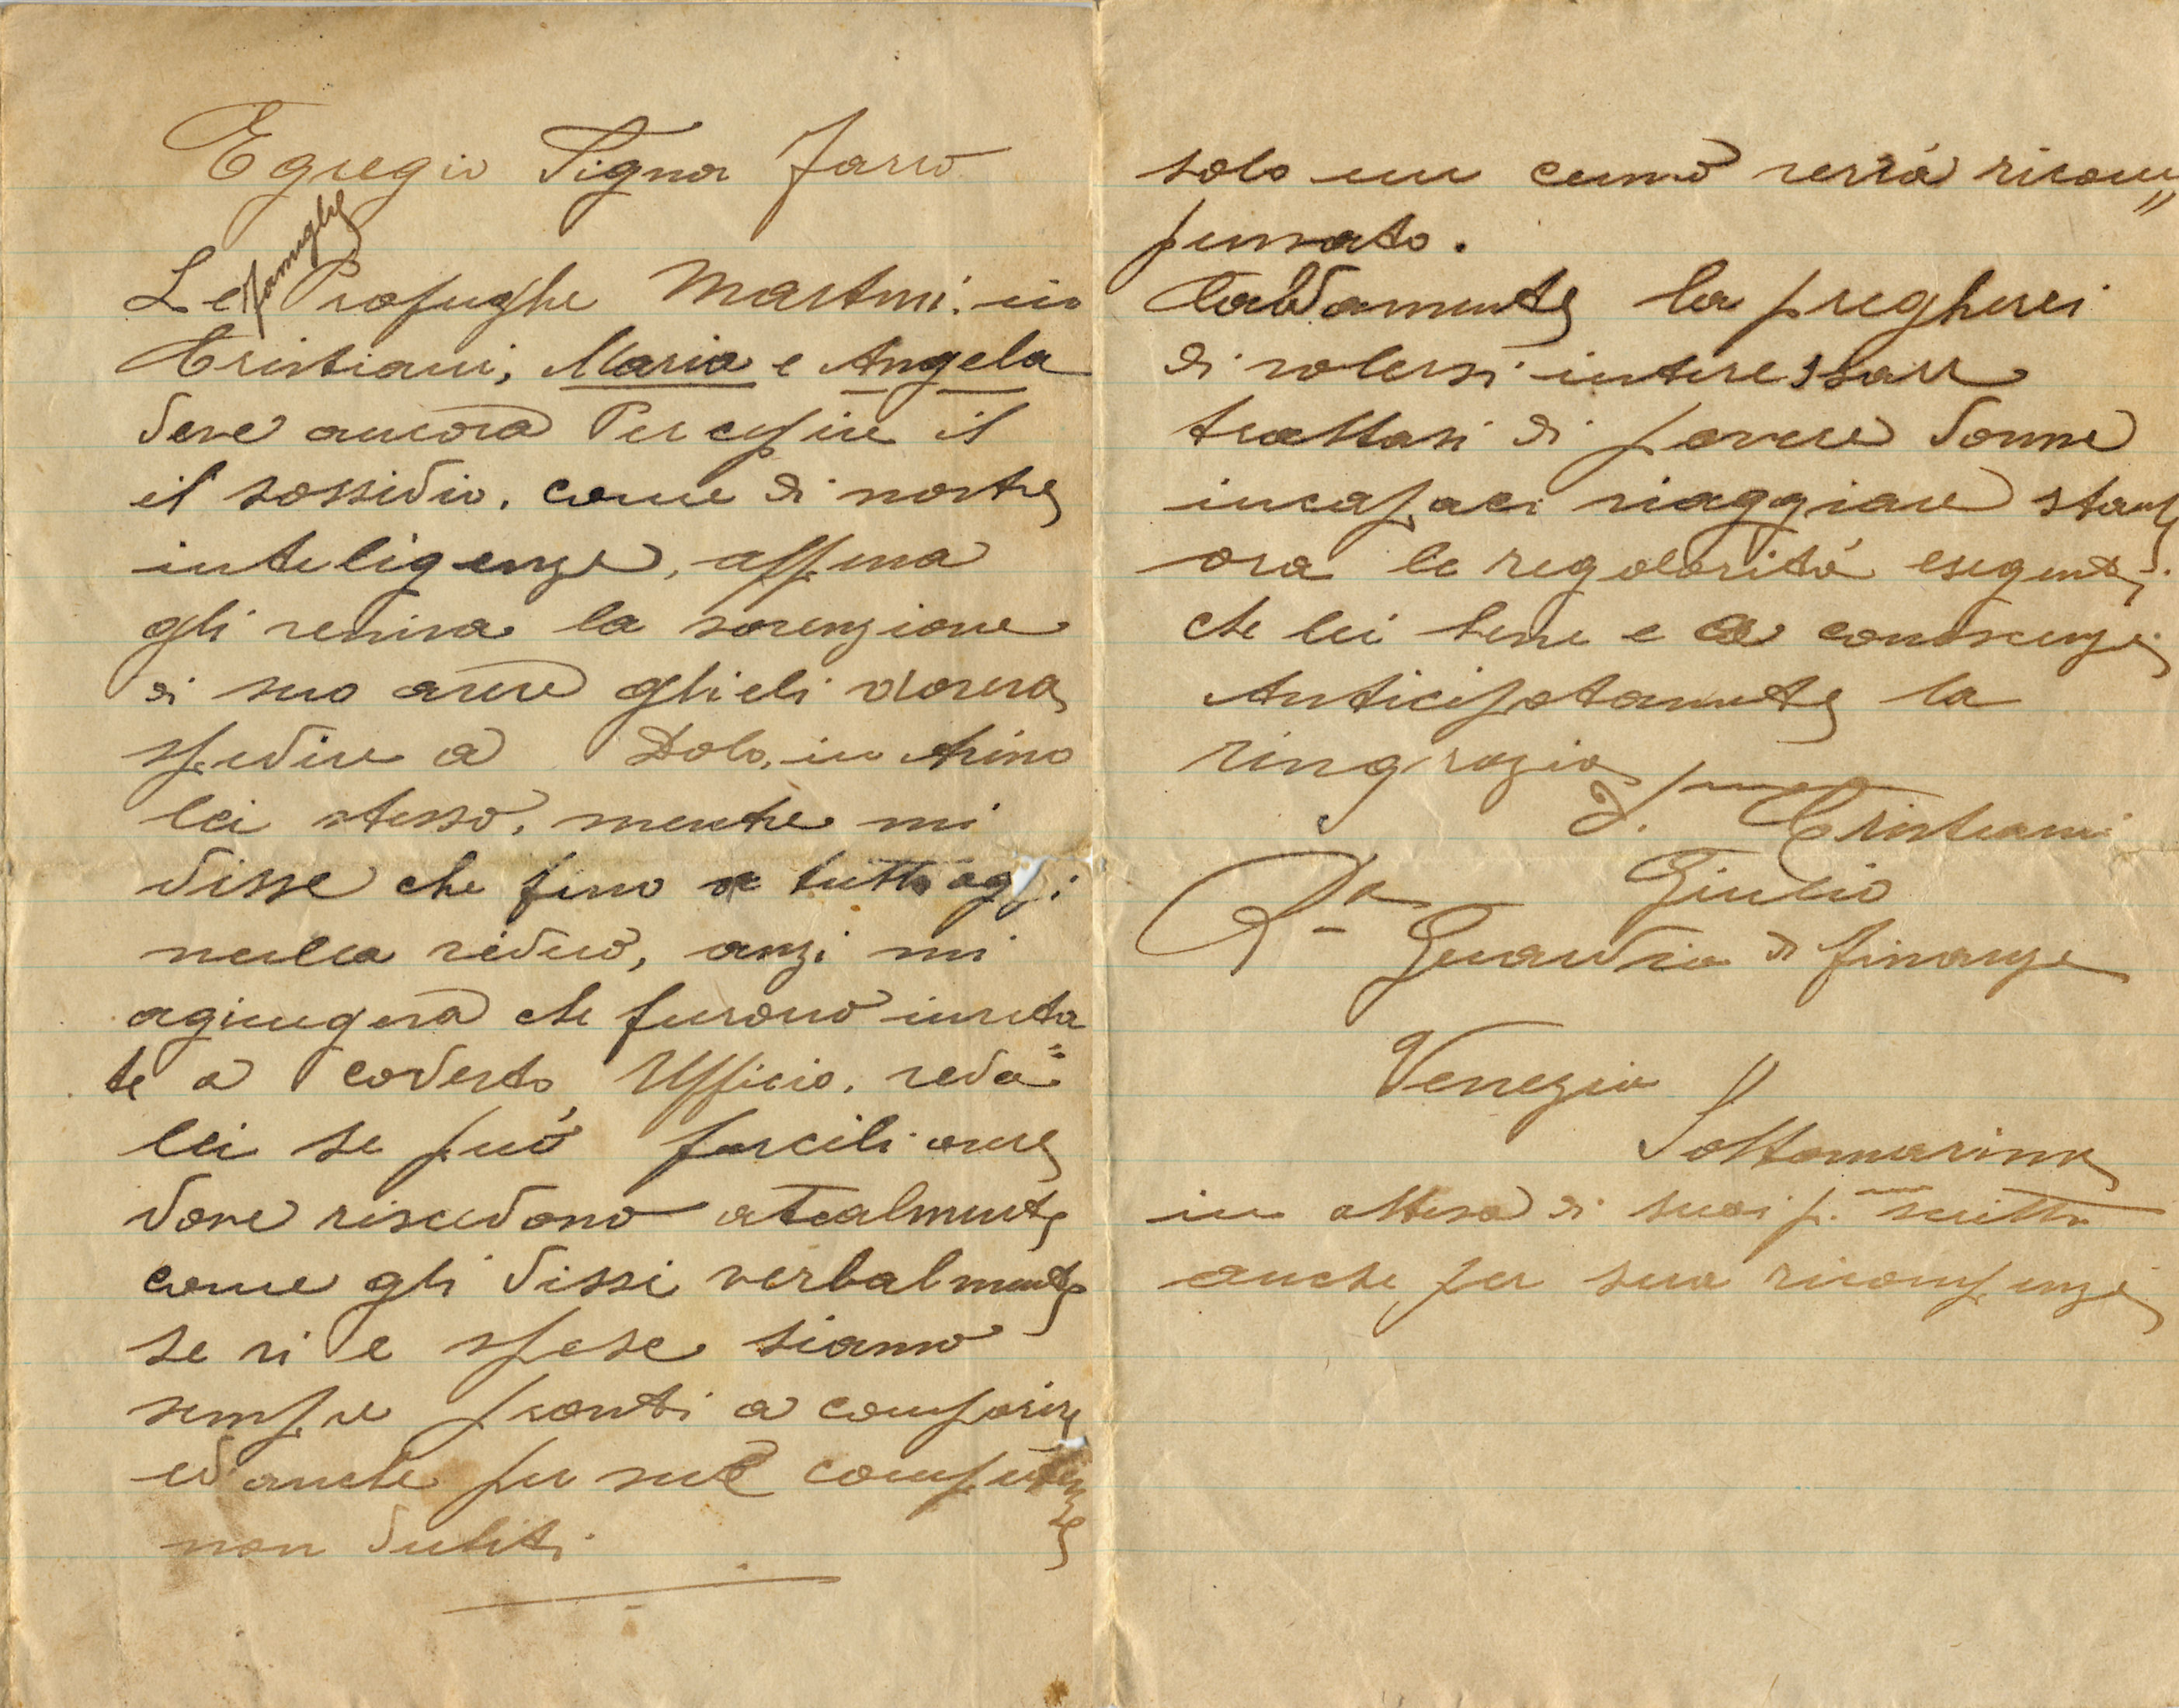 Egregio Signor Farro
famiglie
Le Profughe Martini in
Cristiani, Maria e Angela
deve ancora Percepire il
il sossidio, come di nostre
inteligenze, appena
gli veniva la sovenzione
di suo avere glieli doveva
spedire a Dolo, in Arino
lei stesso, mentre mi
disse che fino a tutto oggi
nulla vedeno, anzi mi
agiungeva che furono invita
te a codesto Ufficio. veda
lei se può facili are
dove risciedono atualmente
come gli dissi verbalmente
se vi e spese siamo
sempre pronti a comparire
ed anche per sue competenze
non dubiti
solo un cenno verrà ricom„
pensato.
Caldamente la pregherei
di volersi interessare
trattasi di povere donne
incapaci viaggiare stante
ora le regolarità esegenti.
che lei bene e a conoscenze
Anticipatamente la
ringrazio
d. Cristiani
Giulio
Ra Guardia di finanze
Venezia
Sottomarina
in attesa di suoi p. scritto
anche per sua ricompenze